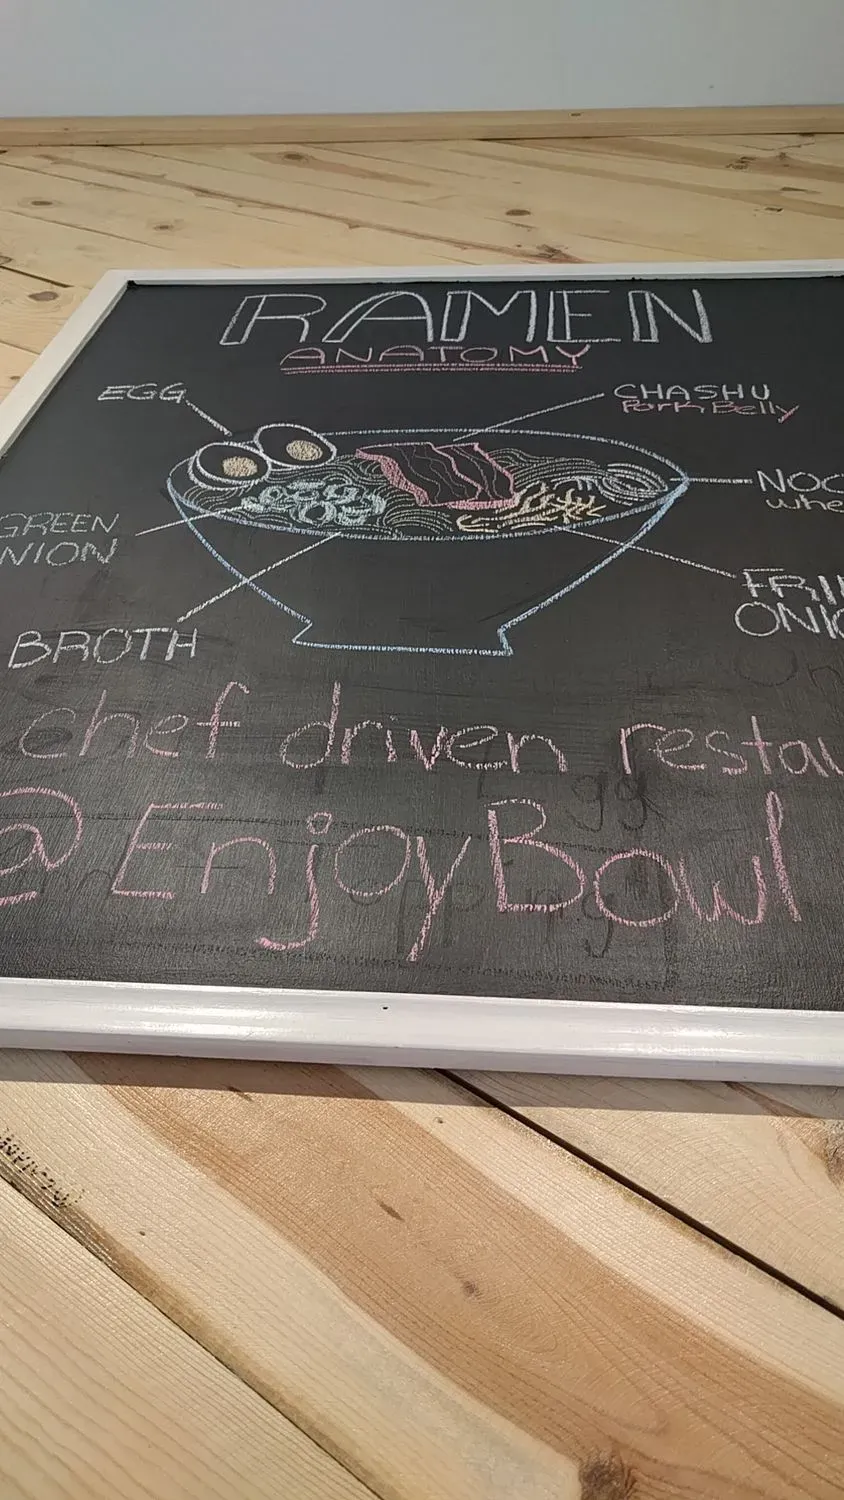 RAMEN
ANATOMY
EGG
CHASHU
Pork Belly
NOO
whe
GREEN
NION
FRI
ONIO
BROTH
chef driven restau
@EnjoyBowl